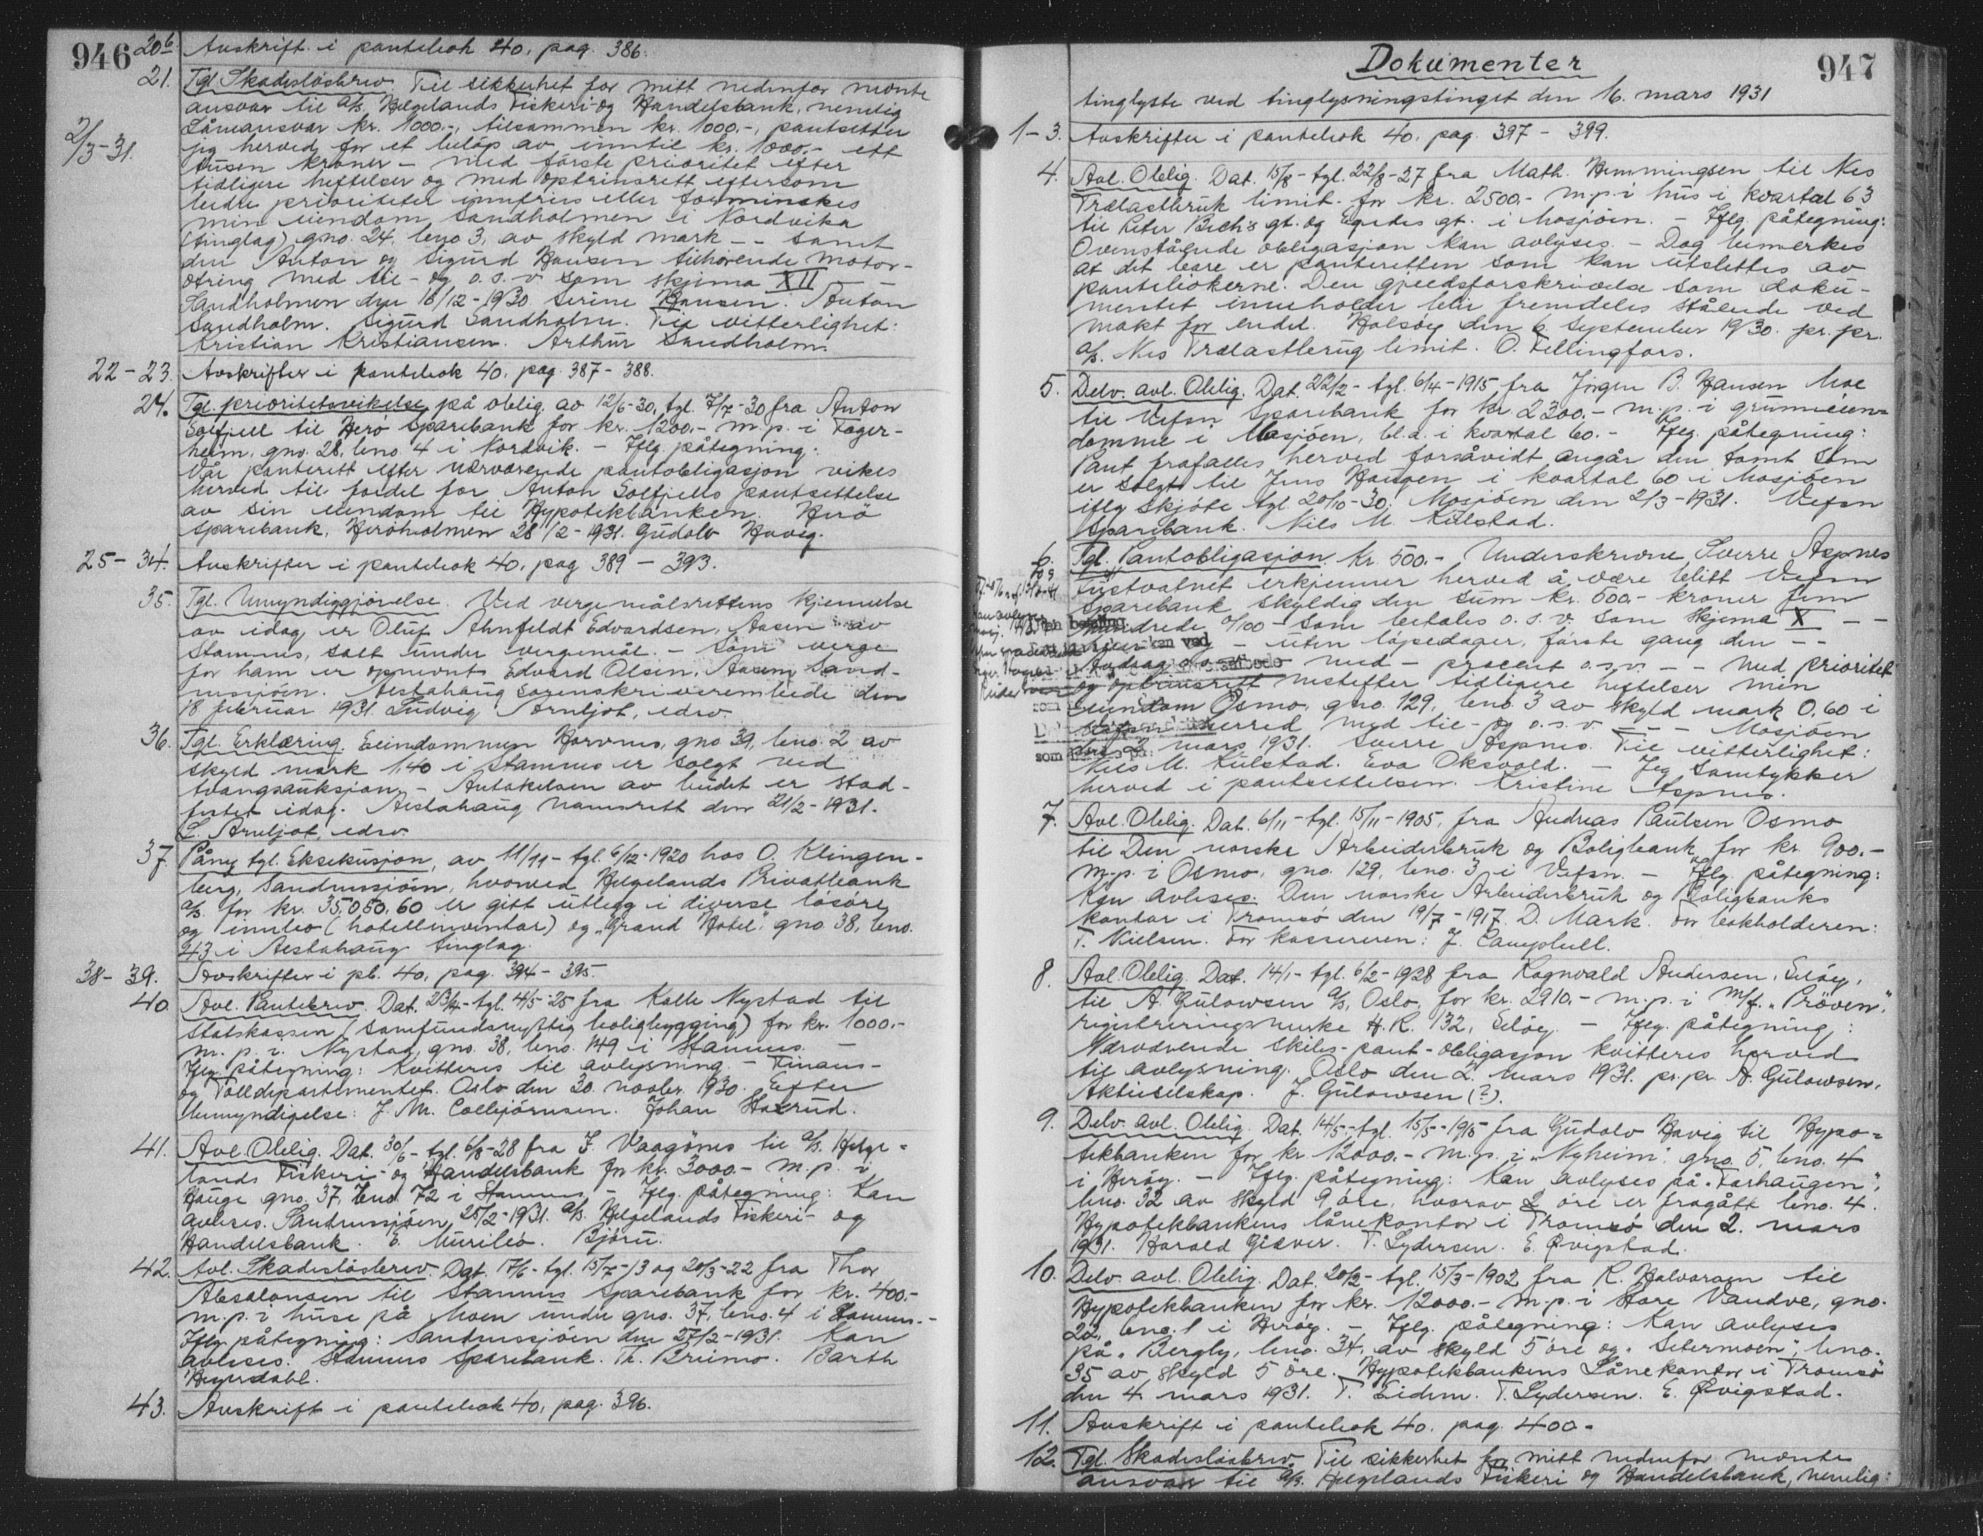 946
20b Avskrift i pantebok 40, pag. 386.
21. Tgl. Skadesløsbrev. Til sikkerhet for mitt nedenfor nevnte
ansvar til a/s Helgelands Fiskeri- og Handelsbank, nemlig
Låneansvar kr. 1000.-, tilsammen kr. 1000.-, pantsetter
2/3-31. jeg herved for et beløp av inntil kr. 1000.- ett
tusen kroner - med første prioritet efter
tidligere heftelser og med optrinsrett eftersom
bedre prioriteter innfries eller forminskes
min eiendom Sandholmen i Nordvika
(tinglag) gno. 24, bno 3, av skyld mark - - samt
den Anton og Sigurd Hansen tilhørende motor-
otring med til- og o.s.v. som skjema XII - -
Sandholmen den 16/12-1930. Serine Hansen. Anton
Sandholm. Sigurd Sandholm. Til vitterlighet:
Kristian Kristiansen. Arthur Sandholm.
22-23. Avskrifter i pantebok 40, pag. 387-388.
24. Tgl. prioritetsvikelse på oblig. av 12/6-30, tgl. 7/7-30 fra Anton
Solfjell til Herø Sparebank for kr. 1200.- m.p. i Fager-
heim, gno. 28, bno. 4 i Nordvik. - Iflg. påtegning:
Vår panterett efter nærværende pantobligasjon vikes
herved til fordel for Anton Solfjells pantsettelse
av sin eiendom til Hypotekbanken. Herø
Sparebank, Herøholmen 28/2-1931. Gudolv Havig.
25-34. Avskrifter i pantebok 40, pag 389 - 393.
35. Tgl. Umyndiggjørelse. Ved vergemålsrettens kjennelse
av idag er Oluf Ahnfeldt Edvardsen, Aasen av
Stamnes, satt under vergemål. - Som verge
for ham er opnevnt Edvard Olsen, Aasen, Sand-
nessjøen. Alstahaug sorenskriverembede den
18 februar 1931. Ludvig Arnljot, edsv.
36. Tgl. Erklæring. Eiendommen Horvnes, gno 39, bno. 2 av
skyld mark 1,40 i Stamnes er solgt ved
tvangsauksjon. - Antakelsen av budet er stad-
festet idag. Alstahaug namsrett den 21/2-1931.
L. Arnljot, edsv.
37. Påny tgl. Eksekusjon, av 11/11 - tgl. 6/12-1920 hos O. Klingen-
berg, Sandnessjøen, hvorved Helgelands Privatbank
a/s for kr. 35.050,60 er gitt utlegg i diverse løsøre
og innbo (hotellinventar) og "Grand Hotel", gno 38, bno.
43 i Alstahaug tinglag.
38-39. Avskrifter i pb. 40, pag. 394-395.
40. Avl. Pantebrev. Dat. 23/4 - tgl. 4/5-25 fra Kalle Nystad til
Statskassen (samfundsnyttig boligbygging) for kr. 1000.-
m.p. i Nystad, gno. 38, bno. 149 i Stamnes. -
Iflg. påtegning: Kvitteres til avlysning. - Finans-
og Tolldepartementet. Oslo den 30. novbr. 1930. Efter
bemyndigelse: J. M. Collbjørnsen. Johan Haxrud.
41. Avl. Oblig. Dat. 30/6 - tgl. 6/8-28 fra J. Vaagønes til a/s Helge-
lands Fiskeri- og Handelsbank for kr. 3000.- m.p. i
Hauge gno. 37, bno. 72 i Stamnes. - Iflg. påtegning: Kan
avlyses. Sandnessjøen 28/2-1931. a/s Helgelands Fiskeri- og
Handelsbank. E. Bjøru.
42. Avl. Skadesløsbrev. Dat. 17/6 - tgl. 15/7-13 og 20/3-22 fra Thor
Absalonsen til Stamnes Sparebank for kr. 400.-
m.p. i huse på Moen under gno. 37, bno. 4 i Stamnes.-
Iflg. påtegning: Sandnessjøen den 27/2-1931. Kan
avlyses. Stamnes Sparebank. Th. Bruno. Barth
Heyerdahl.
43. Avskrift i pantebok 40, pag. 396.
947
Dokumenter
tinglyste ved tinglysningstinget den 16. mars 1931
1-3. Avskrifter i pantebok 40. pag. 397 - 399.
4. Avl. Oblig. Dat. 15/8 - tgl. 22/8-27 fra Math. Hemmingsen til Nes
Trælastbruk limit. for kr. 2500.- m.p. i hus i kvartal 63
til Peter Bech's gt. og Egedes gt. i Mosjøen. - Iflg. påtegning:
Ovenstående obligasjon kan avlyses. - Dog bemerkes
at det bare er panteretten som kan utslettes av
pantebøkerne. Den gjeldsforskrivelse som doku-
mentet inneholder blir fremdeles stående ved
makt for endel. Halsøy den 6. september 1930. pr.pr.
a/s. Nes Trælastbrug limit. O. Fellingfors.
5. Delv. avl. Oblig. Dat. 22/2 - tgl. 6/4-1915 fra Jørgen B. Hansen Moe
til Vefsn Sparebank for kr 2300.- m.p. i grunneien-
domme i Mosjøen, bl.a. i kvartal 60.- Iflg. påtegning:
Pant frafalles herved forsåvidt angår den tomt som
er solgt til Jens Haugen i kvartal 60 i Mosjøen
iflg skjøte tgl. 20/10-30. Mosjøen den 2/3-1931. Vefsn
Sparebank. Nils M. Kulstad.
6. Tgl. Pantobligasjon. Kr 500.- Underskrevne Sverre Aspnes
Fustvatnet erkjenner herved å være blitt Vefsn
Sparebank skyldig den sum kr. 500.- kroner fem
hundrede 0/100 - som betales o.s.v. som skjema X - -
- uten løpedager, første gang den - -
Avdrag - med - procent o.s.v. - - med prioritet
og optrinsrett nestefter tidligere heftelser min
eiendom Osmo, gno. 129, bno. 3 av skyld mark 0,60 i
Vefsn herred med til- og o.s.v. - - - Mosjøen
den 2 mars 1931. Sverre Aspnes. Til vitterlighet:
Nils M. Kulstad. Eva Oksvold. - Jeg samtykker
herved i pantsettelsen. Kristine Aspnes.
7. Avl. Oblig. Dat. 6/11 - tgl. 15/11-1905, fra Andreas Paulsen Osmo
til Den norske Arbeiderbruk og Boligbank for kr. 900.-
m.p. i Osmo, gno. 129, bno. 3 i Vefsn. - Iflg. påtegning:
Kan avlyses. Den norske Arbeiderbruk og Boligbanks
kontor i Tromsø den 19/7-1917. D. Mark. For bokholderen:
T. Nielsen. For kassereren: J. Campbell.
8. Avl. Oblig. Dat. 14/1 - tgl. 6/2-1928 fra Ragnvald Andersen, Seløy,
til A. Gulowsen a/s, Oslo, for kr. 2910.- m.p. i m/f. "Prøven",
registreringsmerke H.R. 132, Seløy. - Iflg. påtegning:
Nærværende skibs-pant-obligasjon kvitteres herved
til avlysning. Oslo den 2. mars 1931. pr.pr. A. Gulowsen,
Aktieselskap. J. Gulowsen (?).
9. Delv. avl. Oblig. Dat. 14/5 - tgl. 15/5-1915 fra Gudolv Havig til Hypo-
tekbanken for kr. 12000.- m.p. i "Nyheim". gno. 5, bno. 4
i Herøy. - Iflg. påtegning: Kan avlyses på "Farhaugen",
bno. 32 av skyld 9 øre, hvorav 2 øre er fragått bno. 4.
Hypotekbankens lånekontor i Tromsø den 2. mars
1931. Harald Giæver. T. Lydersen. E. Øvigstad.
10. Delv. avl. Oblig. Dat. 20/2 - tgl. 15/3-1902 fra R. Halvorsen til
Hypotekbanken for kr. 12000.- m.p. i Store Vandve, gno.
22, bno. 1 i Herøy. - Iflg. påtegning: Kan avlyses
på "Bergly", bno. 34, av skyld 5 øre og "Setermoen", bno.
35 av skyld 5 øre. Hypotekbankens Lånekontor i Tromsø
den 4. mars 1931. T. Eidem. T. Lydersen. E. Øvigstad.
11. Avskrift i pantebok 40. pag. 400.-
12. Tgl. Skadesløsbrev. Til sikkerhet for mitt nedenfor nevnte
ansvar til a/s. Helgelands Fiskeri og Handelsbank, nemlig: